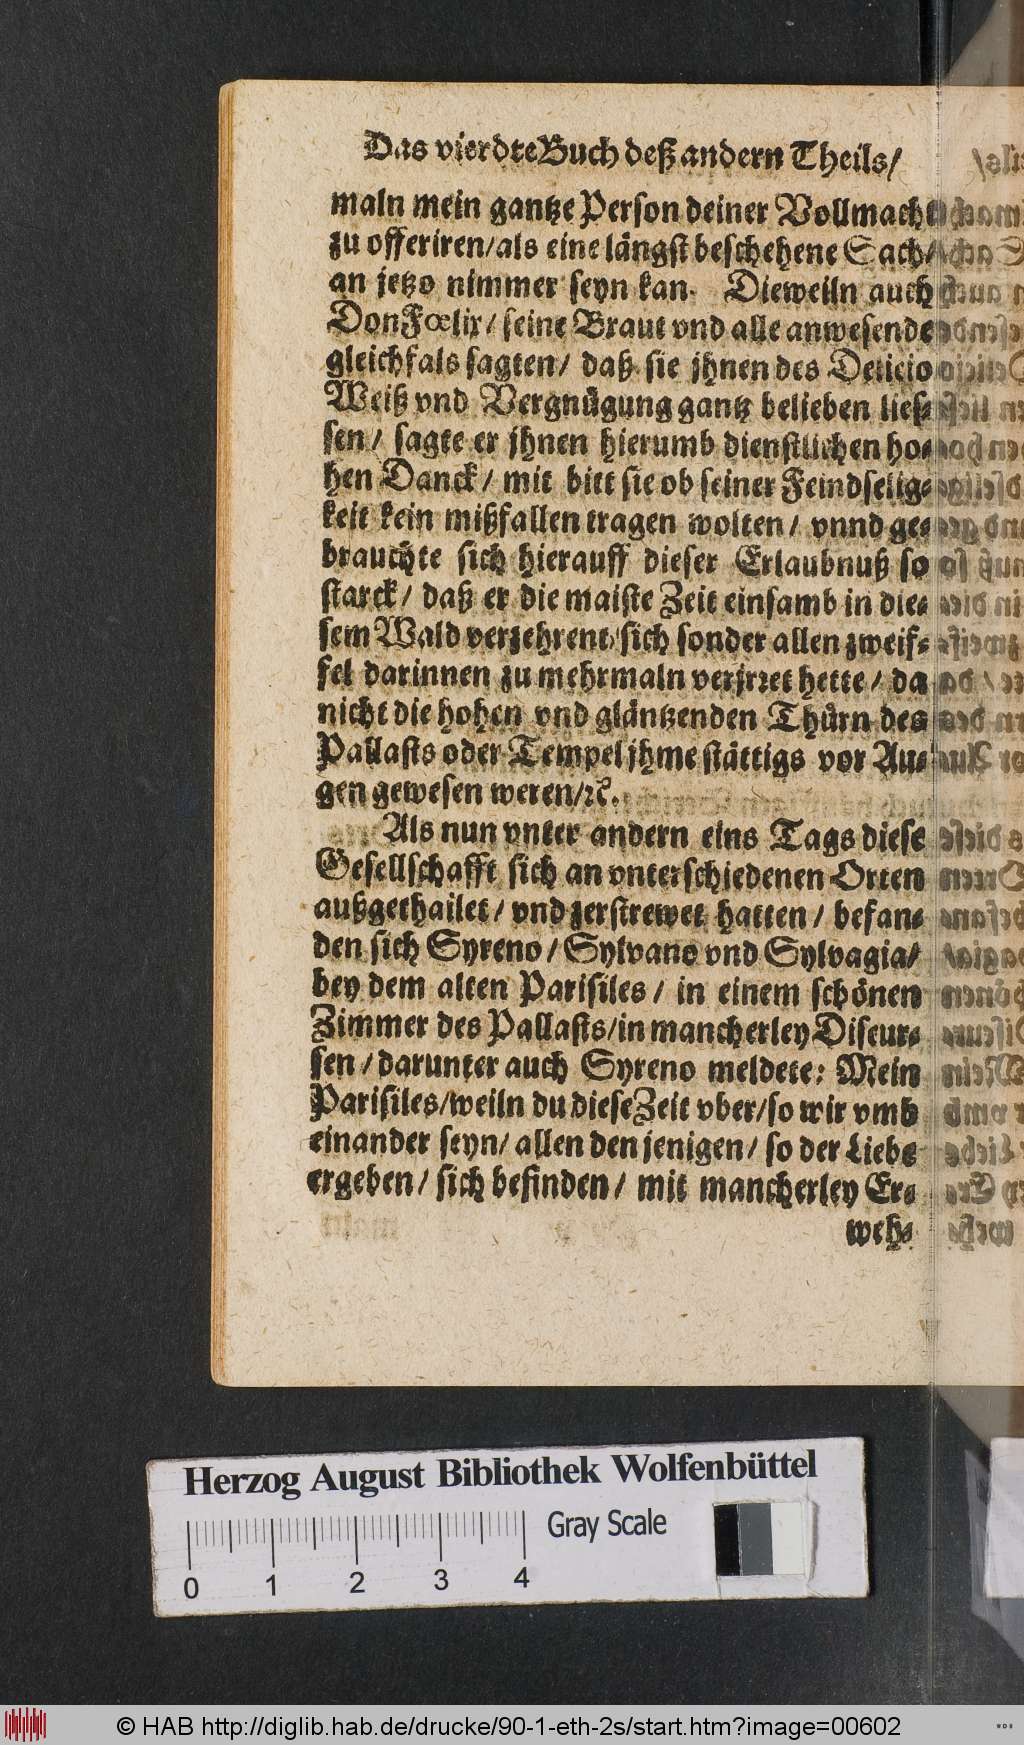 Das vierdte Buch deß andern Theils/
maln mein gantze Person deiner Vollmacht
zu offeriren/als eine längst beschehene Sach/
an jetzo nimmer seyn kan. Dieweiln auch
Don Fœlix/ seine Braut vnd alle anwesende
gleichfals sagten/ daß sie jhnen des Delicio
Weiß vnd Vergnügung gantz belieben lies-
sen/ sagte er jhnen hierumb dienstlichen ho-
hen Danck/ mit bitt sie ob seiner Feindselig-
keit kein mißfallen tragen wolten/ vnnd ge-
brauchte sich hierauff dieser Erlaubnuß so
starck/ daß er die maiste Zeit einsamb in die-
sem Wald verzehrent/sich sonder allen zweif-
fel darinnen zu mehrmaln verjrret hette/ da
nicht die hohen vnd gläntzenden Thürn des
Pallasts oder Tempel jhme stättigs vor Au-
gen gewesen weren/ꝛc.
Als nun vnter andern eins Tags diese
Gesellschafft sich an vnterschiedenen Orten
außgethailet/ vnd zerstrewet hatten/ befan-
den sich Syreno/ Sylvano vnd Sylvagia/
bey dem alten Parisiles/ in einem schönen
Zimmer des Pallasts/in mancherley Discur-
sen/darunter auch Syreno meldete: Mein
Parisiles/weiln du diese Zeit vber/so wir vmb
einander seyn/ allen den jenigen/ so der Liebe
ergeben/ sich befinden/ mit mancherley Er-
weh-
Herzog August Bibliothek Wolfenbüttel
Gray Scale
0 1 2 3 4
© HAB http://diglib.hab.de/drucke/90-1-eth-2s/start.htm?image=00602